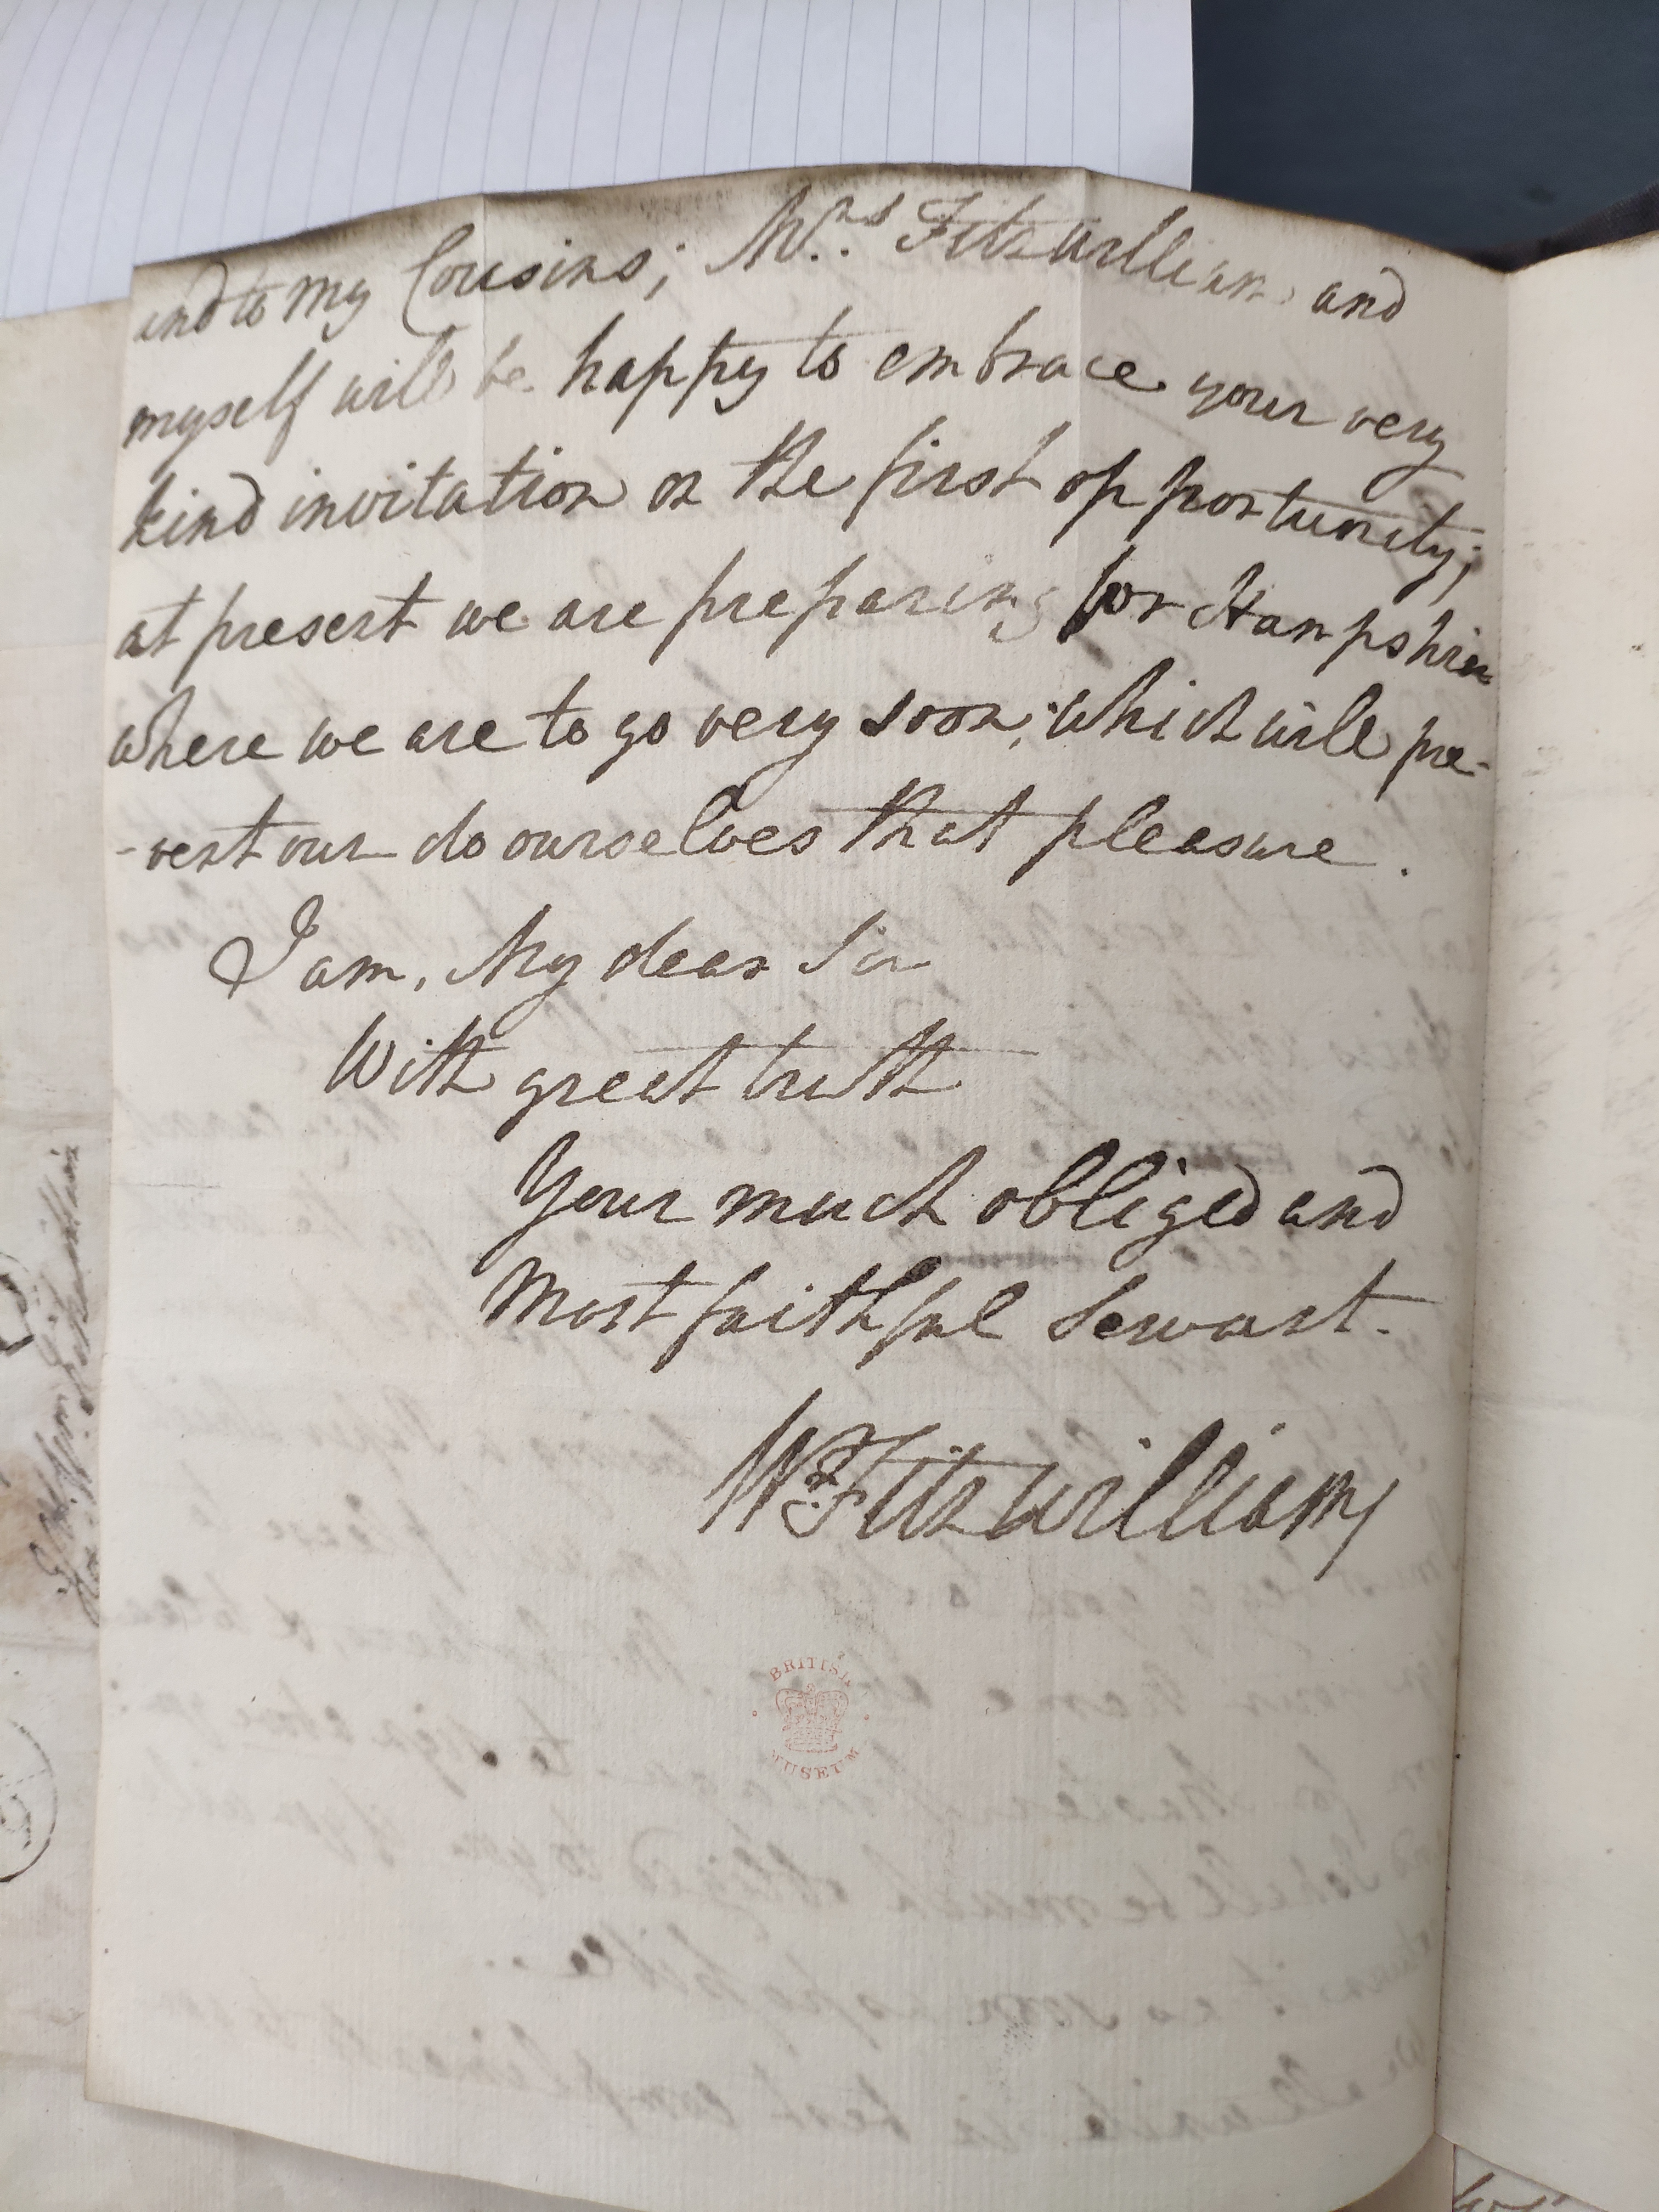 and to my Cousins; Mrs. Fitzwilliam and
myself will be happy to embrace your very
kind invitation on the first opportunity;
at present we are preparing for Hampshire
where we are to go very soon, which will pre-
-vent our do ourselves that pleasure.
I am, My dear Sir
With great truth
Your much obliged and
Most faithful Servant.
Wm. Fitzwilliam
BRITISH
MUSEUM